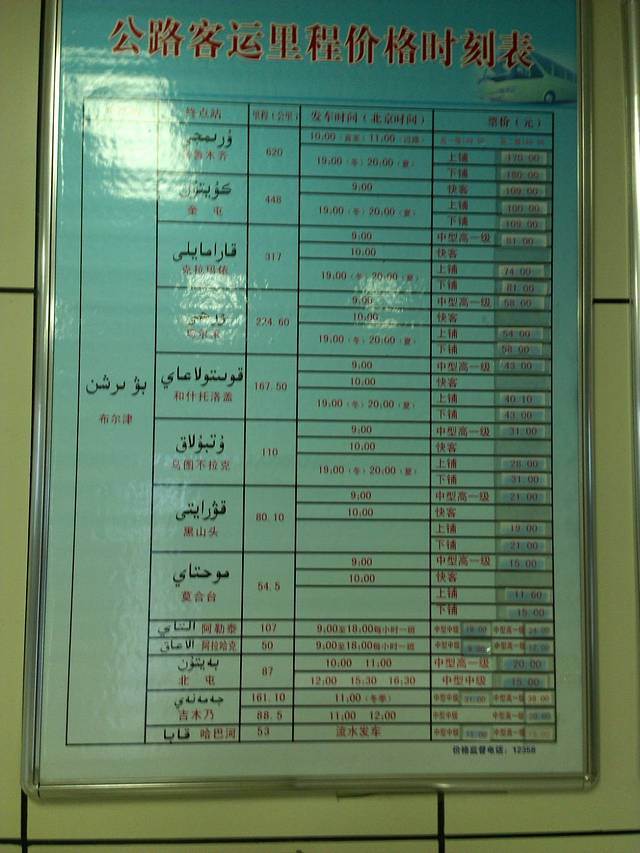 公路客运里程价格时刻表
终点站 里程(公里) 发车时间(北京时间) 票价(元)
بۋىرشن
布尔津
ٷرىمجى 10:00 11:00
乌鲁木齐 620 19:00(冬)20:00(夏) 上铺 170.00
下铺 180.00
كۇيتۇن 9:00 快客 109.00
奎 屯 448 19:00(冬)20:00(夏) 上铺 100.00
下铺 109.00
قارامايلى 9:00 中型高一级 81.00
克拉玛依 317 10:00 快客
19:00(冬)20:00(夏) 上铺 74.00
下铺 81.00
9:00 中型高一级 58.00
乌尔禾 224.60 10:00 快客
19:00(冬)20:00(夏) 上铺 54.00
下铺 58.00
قوستولاعاي 9:00 中型高一级 43.00
和什托洛盖 167.50 10:00 快客
19:00(冬)20:00(夏) 上铺 40.10
下铺 43.00
ٷتبۇلاق 9:00 中型高一级 31.00
乌图不拉克 110 10:00 快客
19:00(冬)20:00(夏) 上铺 28.00
下铺 31.00
قۋرايتى 9:00 中型高一级 21.00
黑山头 80.10 10:00 快客
上铺 19.00
下铺 21.00
موحتاي 9:00 中型高一级 15.00
莫合台 54.5 10:00 快客
上铺 11.60
下铺 15.00
التاي 阿勒泰 107 9:00至18:00每小时一班 中型中级 中型高一级
الاعاق 阿拉哈克 50 9:00至18:00每小时一班 中型中级 中型高一级
بەيتۇن 87 10:00 11:00 中型高一级 20.00
北 屯 12:00 15:30 16:30 中型中级 15.00
جەمەنەي 161.10 11:00(冬季) 中型中级 中型高一级 38.00
吉木乃 88.5 11:00 12:00 中型中级 中型高一级
قابا 哈巴河 53 流水发车 中型中级 中型高一级
价格监督电话:12358